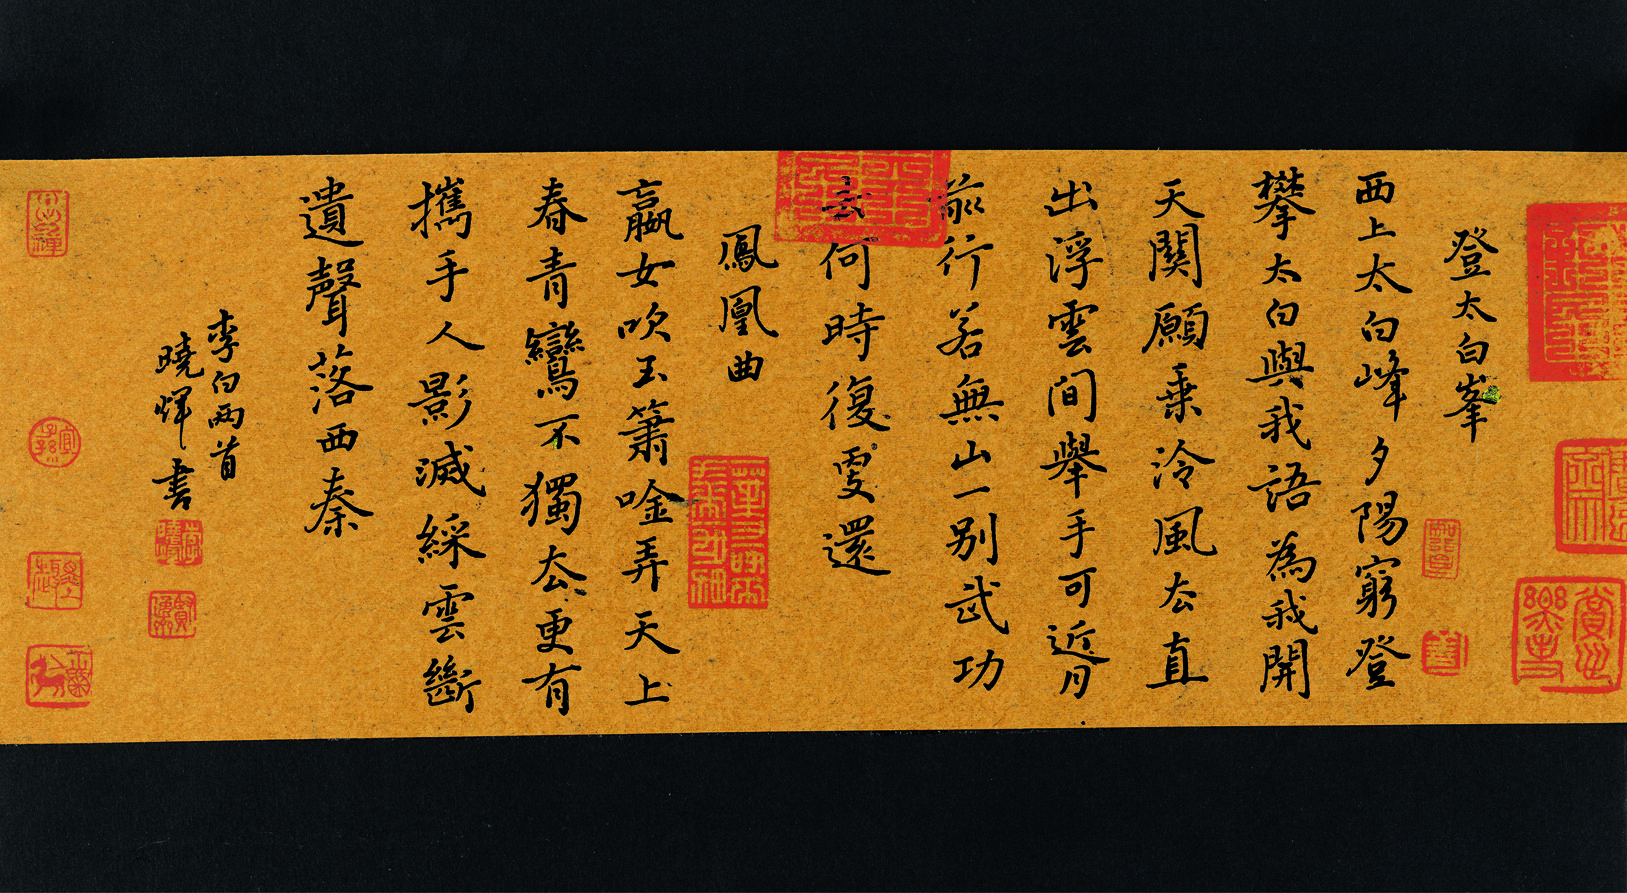 登太白峯
西上太白峰夕陽窮登
攀太白與我語為我開
天關願乘泠風去直
出浮雲間舉手可近月
前行若無山一別武功
去何時復更還
鳳凰曲
嬴女吹玉簫唫弄天上
春青鸞不獨去更有
攜手人影滅綵雲斷
遺聲落西秦
李白兩首
曉煇書
宜子孫